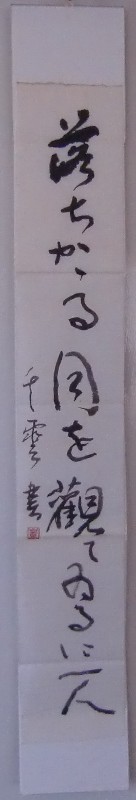 落ちかゝる月を觀てゐるに一人
千雲書